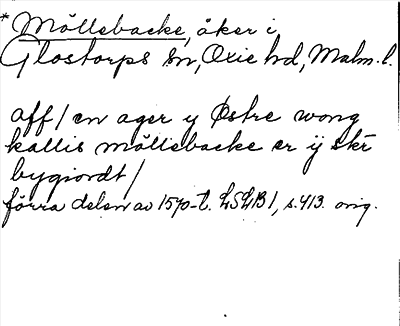 * Möllebacke, åker i
Glostorps sn, Oxie hd, Malm. l.
aff / en ager y Østre wong
kallis möllebacke er ij skr
bygiordt /
förra delen av 1570-t. LSLB 1, s. 413. orig.